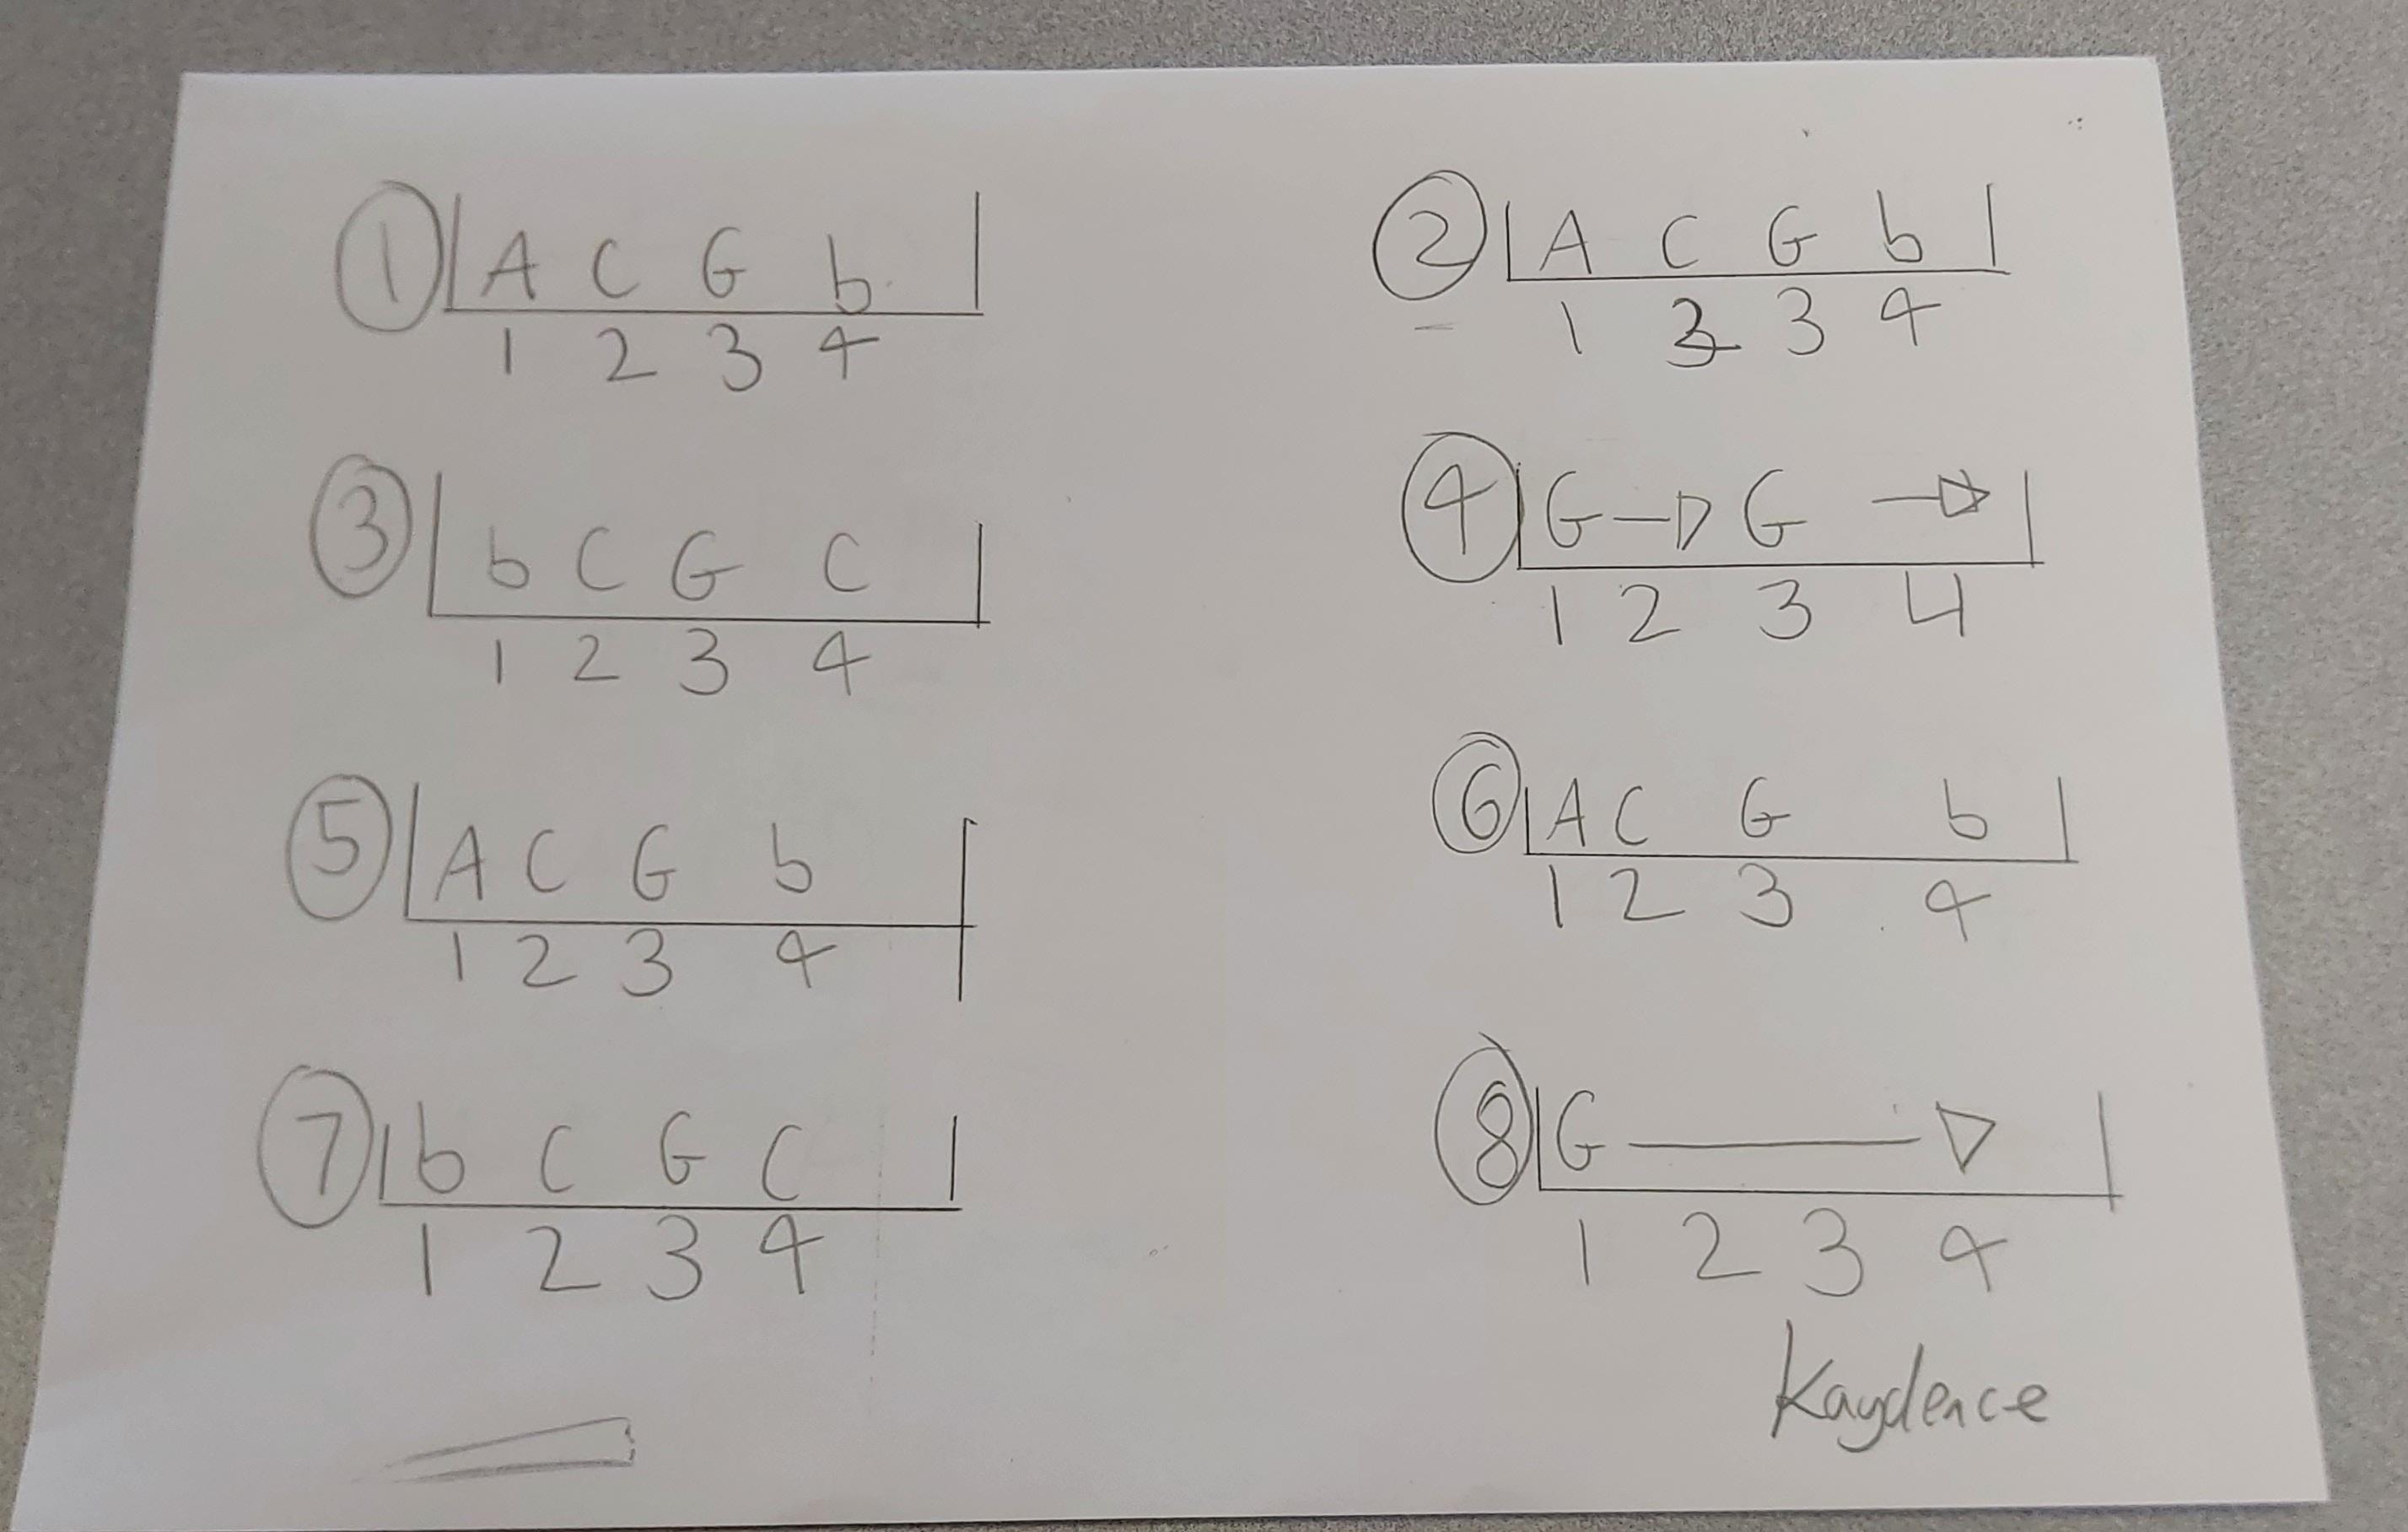 ① | A C G b |
1 2 3 4
② | A C G b |
1 2 3 4
③ | b C G C |
1 2 3 4
④ | G → G → |
1 2 3 4
⑤ | A C G b |
1 2 3 4
⑥ | A C G b |
1 2 3 4
⑦ | b C G C |
1 2 3 4
⑧ | G → |
1 2 3 4
Kaydence